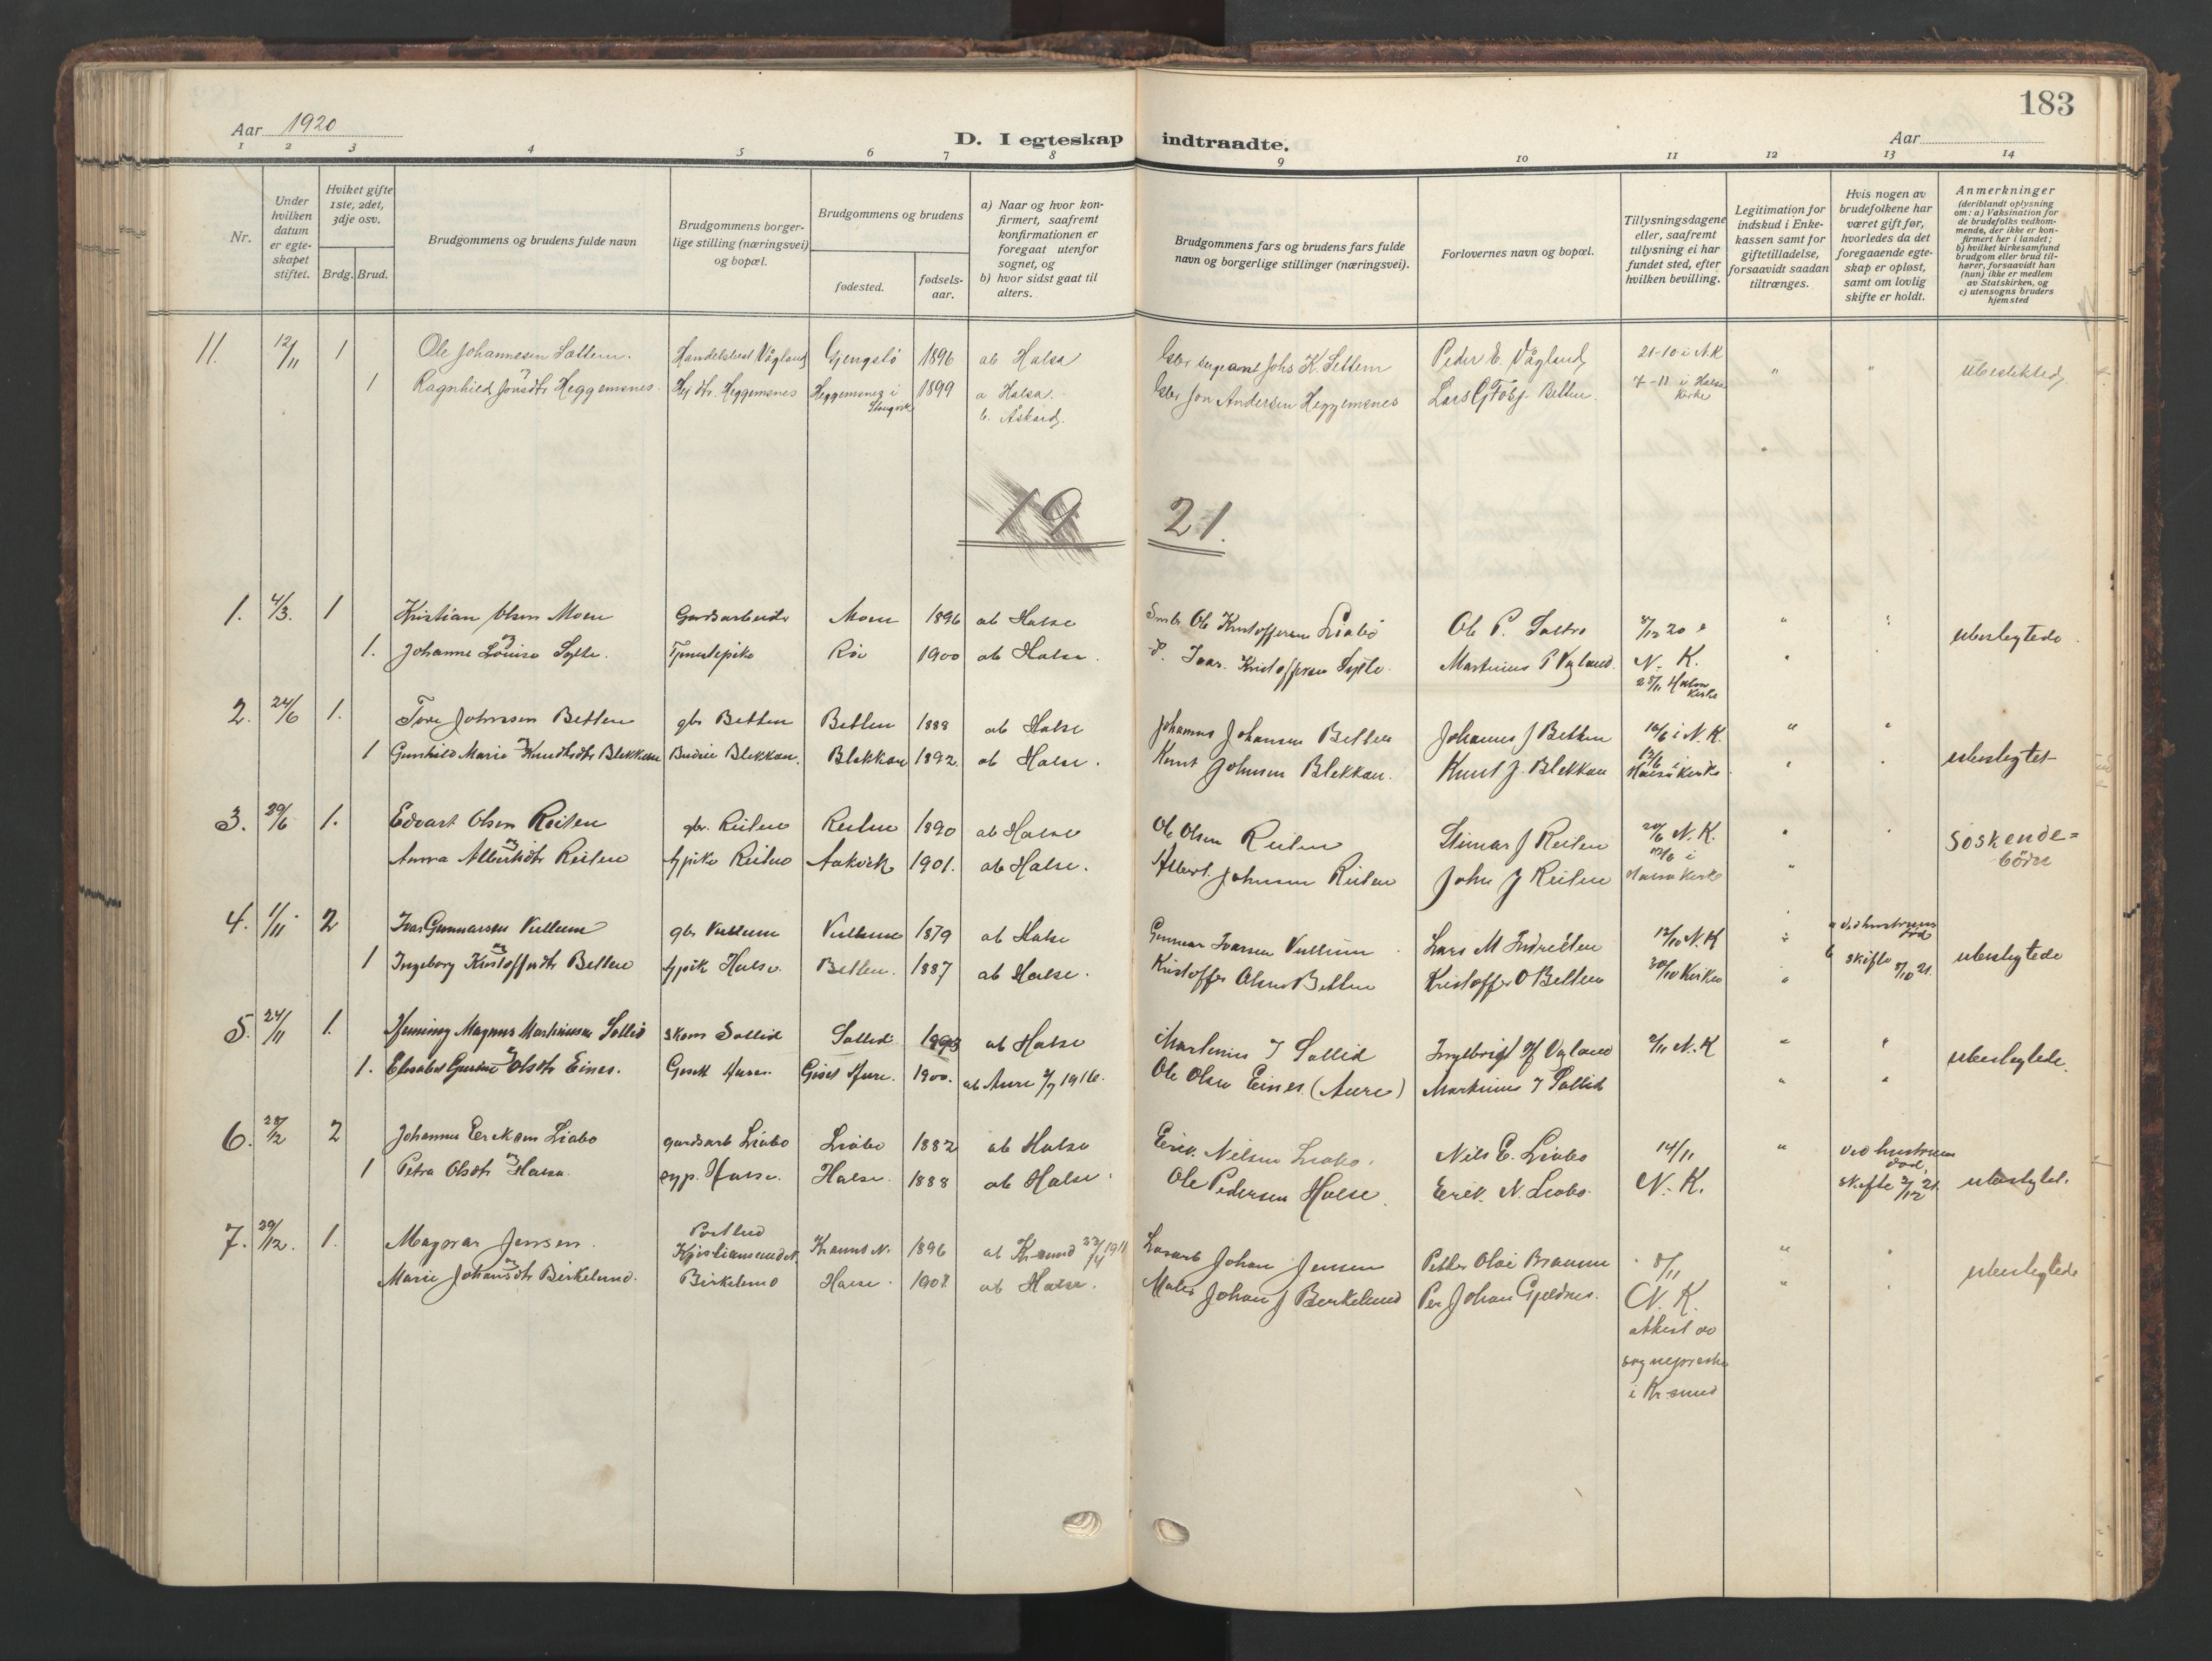 183
Aar 1920
D. I egteskap indtraadte.
Aar
1 2 3 4 5 6 7 8 9 10 11 12 13 14
Nr.
Under hvilken datum er egteskapet stiftet.
Hviket gifte 1ste, 2det, 3dje osv.
Brdg. Brud.
Brudgommens og brudens fulde navn
Brudgommens borgerlige stilling (næringsvei) og bopæl.
Brudgommens og brudens
fødested.
fødselsaar.
a) Naar og hvor konfirmert, saafremt konfirmationen er foregaat utenfor sognet, og
b) hvor sidst gaat til alters.
Brudgommens fars og brudens fars fulde navn og borgerlige stillinger (næringsvei).
Forlovernes navn og bopæl.
Tillysningsdagene eller, saafremt tillysning ei har fundet sted, efter hvilken bevilling.
Legitimation for indskud i Enkekassen samt for giftetilladelse, forsaavidt saadan tiltrænges.
Hvis nogen av brudefolkene har været gift før, hvorledes da det foregaaende egteskap er opløst, samt om lovlig skifte er holdt.
Anmerkninger
(deriblandt oplysning om: a) Vaksination for de brudefolks vedkommende, der ikke er konfirmert her i landet;
b) hvilket kirkesamfund brudgom eller brud tilhører, forsaavidt han (hun) ikke er medlem av Statskirken, og
c) utensogns bruders hjemsted
11. 12/11 1 Ole Johannesen Settem. Handelsbest Vågland 1896 ab Halsa sergeant Johs K. Settem Peder E. Vågland 21-10 i N.K " " ubeslekted
1 Ragnhild Jonsdtr Heggemsnes Heggemsnes Heggemsnes i 1899 a Halsa. b. Jon Andersen Heggemsnes Lars G Betten 7-11 i Halsa Kirke
19 21.
1. 4/3. 1 Kristian Olsen Moen Gardsarbeider Moen 1896 ab Halse Ole Kristoffersen Liabø Ole P. 20 " ubeslegtede.
1. Johanne Louise Sylte. Tjenestepike 1900 ab Halse. Ivar Kristoffersen Sylte Martinus P Vgland N. K. 28/11 Halsa Kirke
2. 24/6 1. Tore Johnsen Betten gbr Betten Betten 1888 ab Halse Johannes Johansen Betten Johannes J Betten i N. K. " " ubeslegtet
1 Gunhild Marie Knudtsdtr Blekkan Budeie Blekkan. Blekkan 1892 ab Halse. Knut Johnsen Blekkan. Knut J. Blekkan Halsa Kirke
3. 29/6 1. Edvart Olsen Reiten gbr. Reiten Reiten 1890 ab Halse Ole Olsen Reiten J Reiten N. K. Søskende=
Anna Albertsdtr Reiten Reiten Aakvik 1901. ab Halse. Albert Johnsen Reiten John J Reiten i Halsa Kirke børn
4. 1/11 2 Ivar Gunnarsen Vullum gbr Vullum Vullum 1879 ab Halse Gunnar Ivarsen Vullum Lars M 17/10 N.K a ved hustruens død ubeslegtede
1 Ingeborg Kristoffersdtr Betten Halse. Betten. 1887 ab Halse. Kristoffer Olsen Betten Kristoffer O Betten 30/10 Kirke b skifte 21.
5. 24/11 1. Henning Magnus Martinusen Sollid Sollid Sollid ab Halse Martinus T Sollid Ingebrigt Vgland N.K " " ubeslegtede.
1. Elisabet Olsdtr Eines. Aure. 1900. ab Aure 1916. Ole Olsen Eines (Aure) Martinus T Sollid
6. 28/12 2 Johannes Eerikson Liabø gardsarb Liabø Liabø 1882 ab Halse Eerik. Nilsen Liabø. Nils E. Liabø 14/11 " ved hustruens død,
1 Petra Olsdtr Halse Halse. Halse. 1888 ab Halse. Ole Pedersen Halse. Eerik. N. Liabø N. K. skifte 21. ubeslegtet.
7. 29/12. 1. Magnar Jensen. Postbud Kristiansund N. 1896 ab Kr-sund 1911 Johan Jensen Petter 8/11
Marie Johansdtr Birkelund. Birkelund Halse. ab Halse. Maler Johan J Berkelund Per Johan Gjeldnes. N. K. ubeslegtede
attest av
sogneprest
i Kr-sund